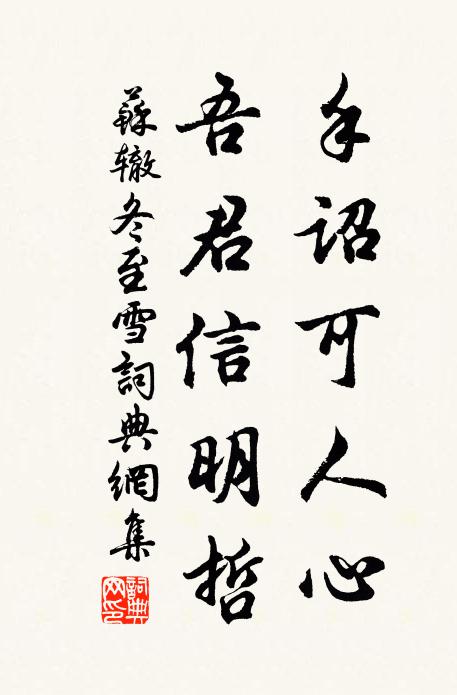 手詔可人心
吾君信明哲
蘇轍冬至雪詞典網集
詞典網印